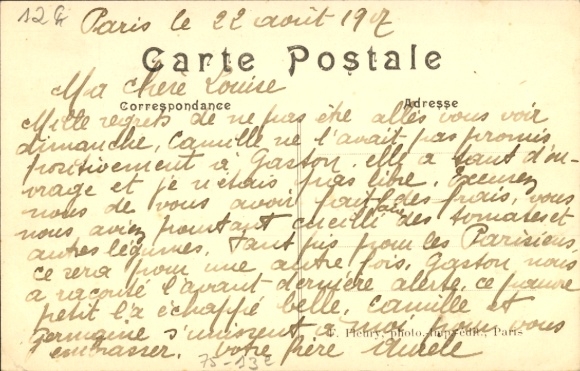 12 G
Paris le 22 août 1917
Carte Postale
Ma chère Louise
Correspondance
Adresse
Mille regrets de ne pas être allés vous voir
dimanche, Camille ne l'avait pas promis
positivement à Gaston, elle a tant d'ou-
vrage et je n'étais pas libre. Excusez
nous de vous avoir fait faire des frais, vous
nous aviez pourtant cueilli des tomates et
autres légumes. Tant pis pour les Parisiens
ce sera pour une autre fois. Gaston nous
a raconté l'avant-dernière alerte, ce pauvre
petit l'a échappé belle. Camille et
Germaine s'unissent à moi pour vous
Fleury, photo.-imp.-édit., Paris
embrasser. Votre frère Aurèle
75-13E